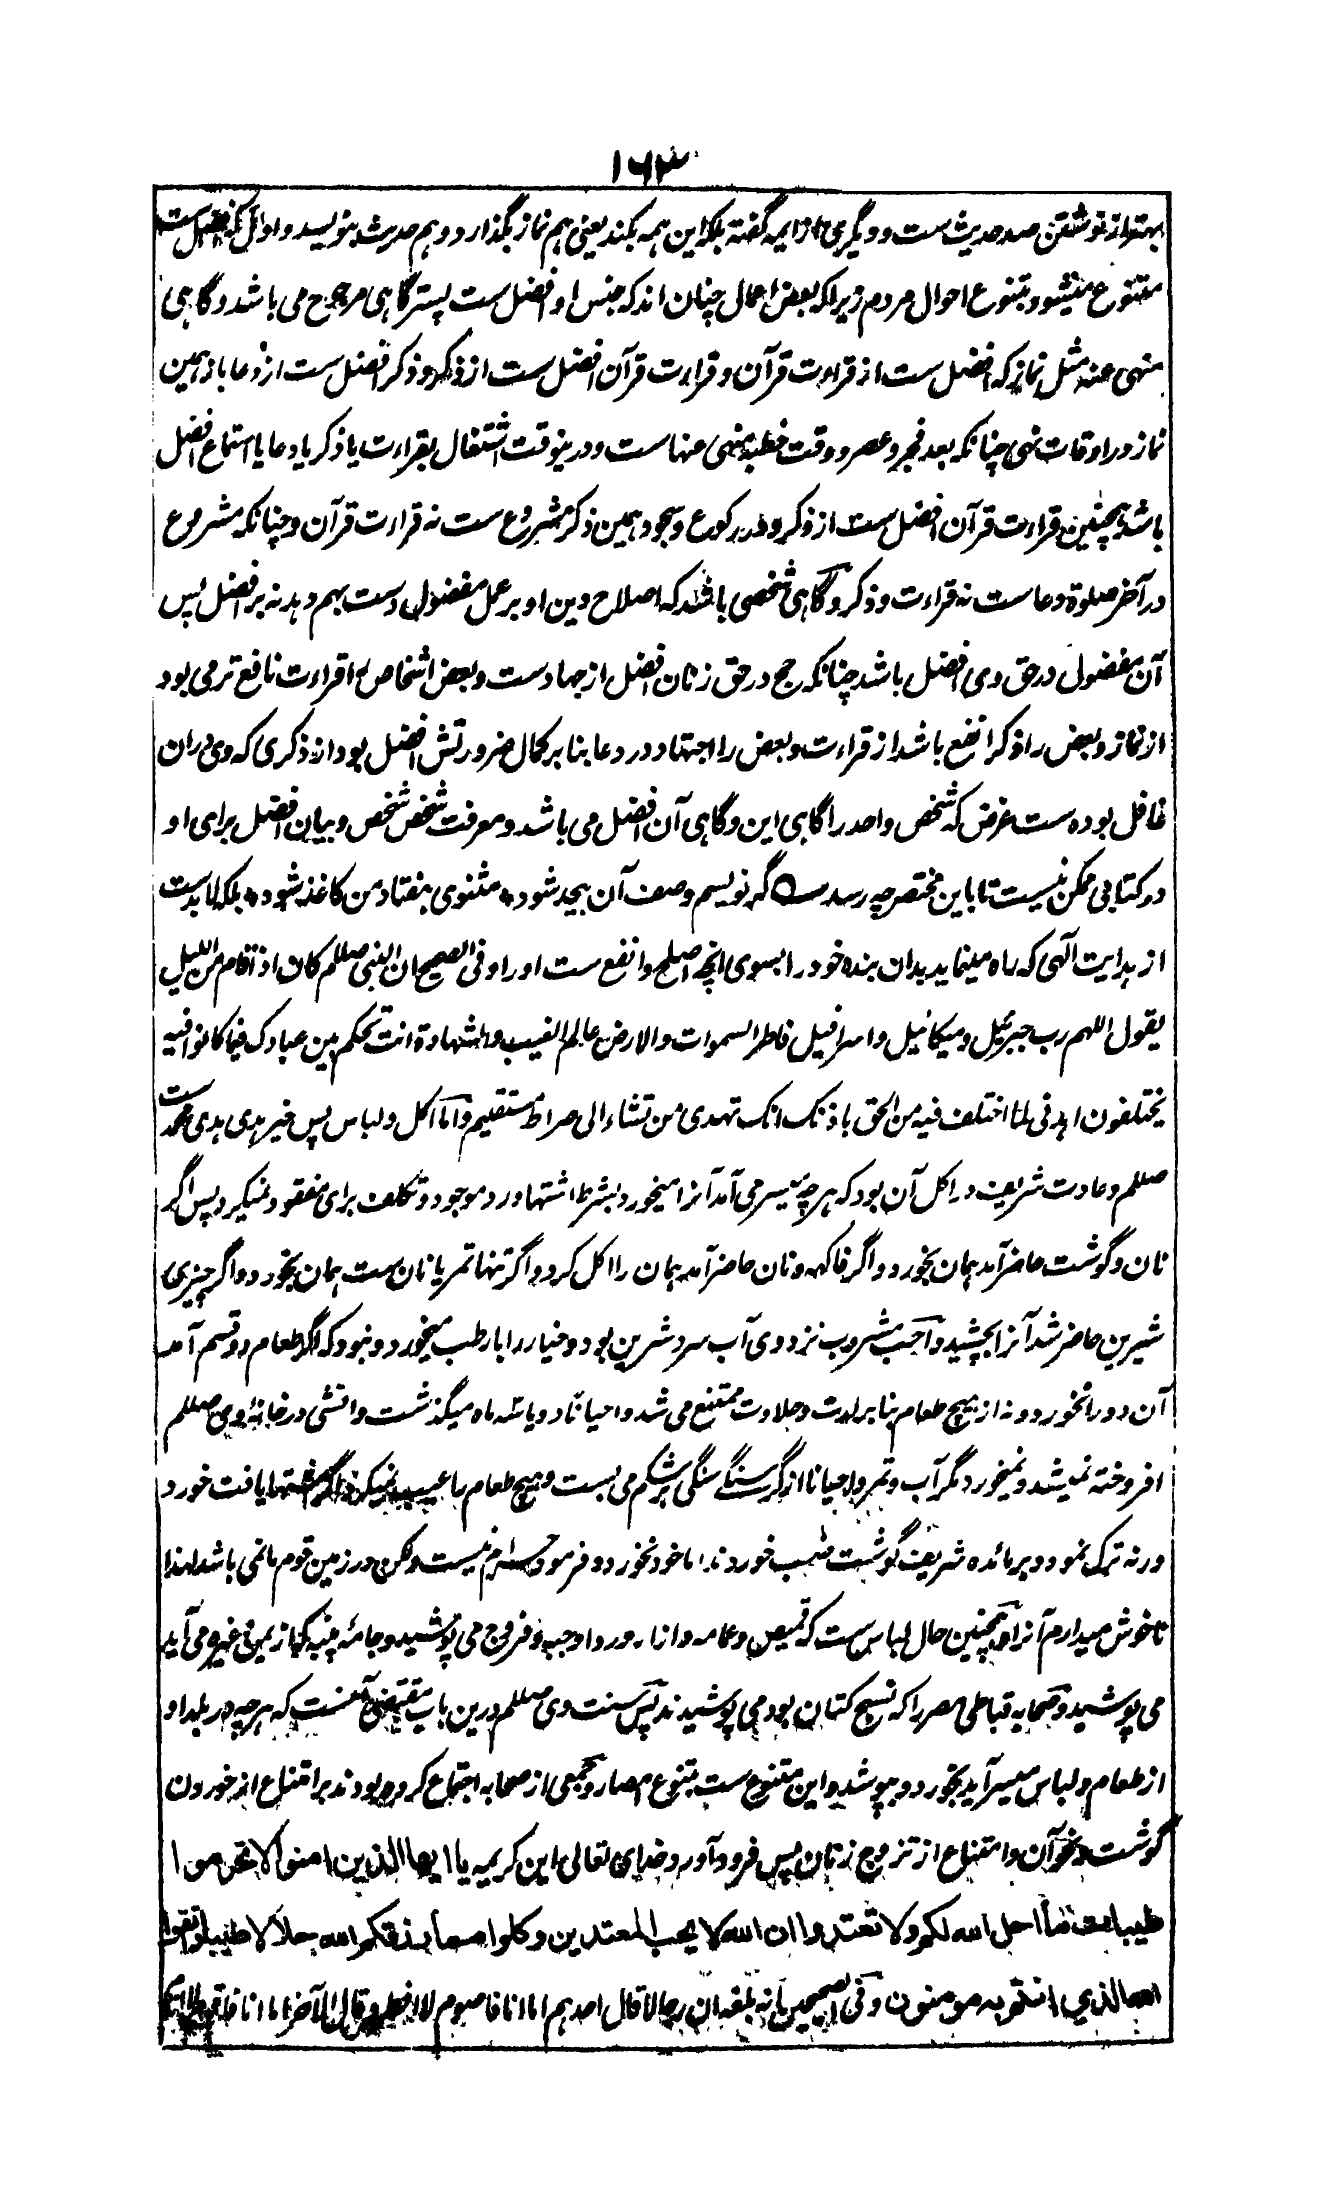 ۱۶۳
بهتر از نوشتن صد حدیث ست و دیگری از ایمه گفته بلکه این همه بکند یعنی هم نماز بگذارد و هم حدیث بنویسد و اوائل که افضل ست
متنوع میشود بتنوع احوال مردم زیراکه بعض اعمال چنان اند که جنس او افضل ست پستر گاهی مرجوح می باشد و گاهی
منهی عنه مثل نماز که افضل ست از قراءت قرآن و قراءت قرآن افضل ست از ذکر و ذکر افضل ست از دعا باز همین
نماز در اوقات نهی چنانکه بعد فجر و عصر و وقت خطبه منهی عنها ست و درینوقت اشتغال بقراءت یا ذکر یا دعا یا استماع افضل
باشد همچنین قراءت قرآن افضل ست از ذکر و در رکوع و سجود همین ذکر مشروع ست نه قراءت قرآن و چنانکه مشروع
در آخر صلوة دعا ست نه قراءت و ذکر و گاهی شخصی باشد که اصلاح دین او بر عمل مفضول دست بهم دهد نه بر افضل پس
آن مفضول در حق وی افضل باشد چنانکه حج در حق زنان افضل از جهاد ست و بعض اشخاص را قراءت نافع تر می بود
از نماز و بعض را ذکر انفع باشد از قراءت و بعض را اجتهاد در دعا بنا بر کمال ضرورتش افضل بود از ذکری که وی دران
غافل بوده ست غرض که شخص واحد را گاهی این و گاهی آن افضل می باشد و معرفت شخص شخص و بیان افضل برای او
در کتابی ممکن نیست تا باین مختصر چه رسد گر نویسم وصف آن بیحد شود * مثنوی هفتاد من کاغذ شود * بلکه لابد ست
از هدایت الهی که راه مینماید بدان بنده خود را بسوی انچه اصلح و انفع ست او را و فی الصحیح ان النبی صللم کان اذا قام من اللیل
یقول اللهم رب جبرئیل و میکائیل و اسرافیل فاطر السموات والارض عالم الغیب والشهادة انت تحکم بین عبادک فیما کانوا فیه
یختلفون اهدنی لما اختلف فیه من الحق باذنک انک تهدی من تشاء الی صراط مستقیم و اما اکل و لباس پس خیر هدی هدی محمد ست
صللم و عادت شریف در اکل آن بود که هر چه میسر می آمد آنرا میخورد بشرط اشتها و رد موجود و تکلف برای مفقود نمیکرد پس اگر
نان و گوشت حاضر آمد همان بخورد و اگر فاکهه و نان حاضر آمد همان را اکل کرد و اگر تنها تمر یا نان ست همان بخورد و اگر چیزی
شیرین حاضر شد آنرا بچشید و احب مشروب نزد وی آب سرد شیرین بود و خیار را با رطب میخورد و نبود که اگر طعام دو قسم آمد
آن دو را نخورد و نه از هیچ طعام بنا بر لذت و حلاوت ممتنع می شد و احیانا دو یا سه ماه میگذشت و آتشی در خانۀ وی صللم
افروخته نمیشد و نمیخورد مگر آب و تمر و احیانا از گرسنگے سنگی بر شکم می بست و هیچ طعام را عیب نمیکرد اگر اشتها یافت خورد
ورنه ترک نمود و بر مائده شریف گوشت ضب خوردند اما خود نخورد و فرمود حرام نیست ولکن در زمین قوم ما نمی باشد لهذا
ناخوش میدارم آنرا و همچنین حال لباس ست که قمیص و عمامه و ازار و ردا و جبه و فروج می پوشید و جامۀ پنبه که از یمن و غیره می آید
می پوشید و صحابه قباطی مصر را که نسیج کتان بود می پوشیدند پس سنت وی صللم درین باب مقتضی آنست که هر چه در بلد او
از طعام و لباس میسر آید بخورد و بپوشد و این متنوع ست بتنوع امصار و جمعی از صحابه اجتماع کرده بودند بر امتناع از خوردن
گوشت و نحو آن و امتناع از تزوج زنان پس فرود آورد خدای تعالی این کریمه یا ایها الذین امنوا لا تحرموا
طیبات ما احل الله لکم ولا تعتدوا ان الله لا یحب المعتدین و کلوا مما رزقکم الله حلالا طیبا و اتقوا
الله الذی انتم به مومنون و فی الصحیحین انه بلغه ان رجالا قال احدهم اما انا فاصوم لا افطر و قال الآخر اما انا فاقوم لا انام